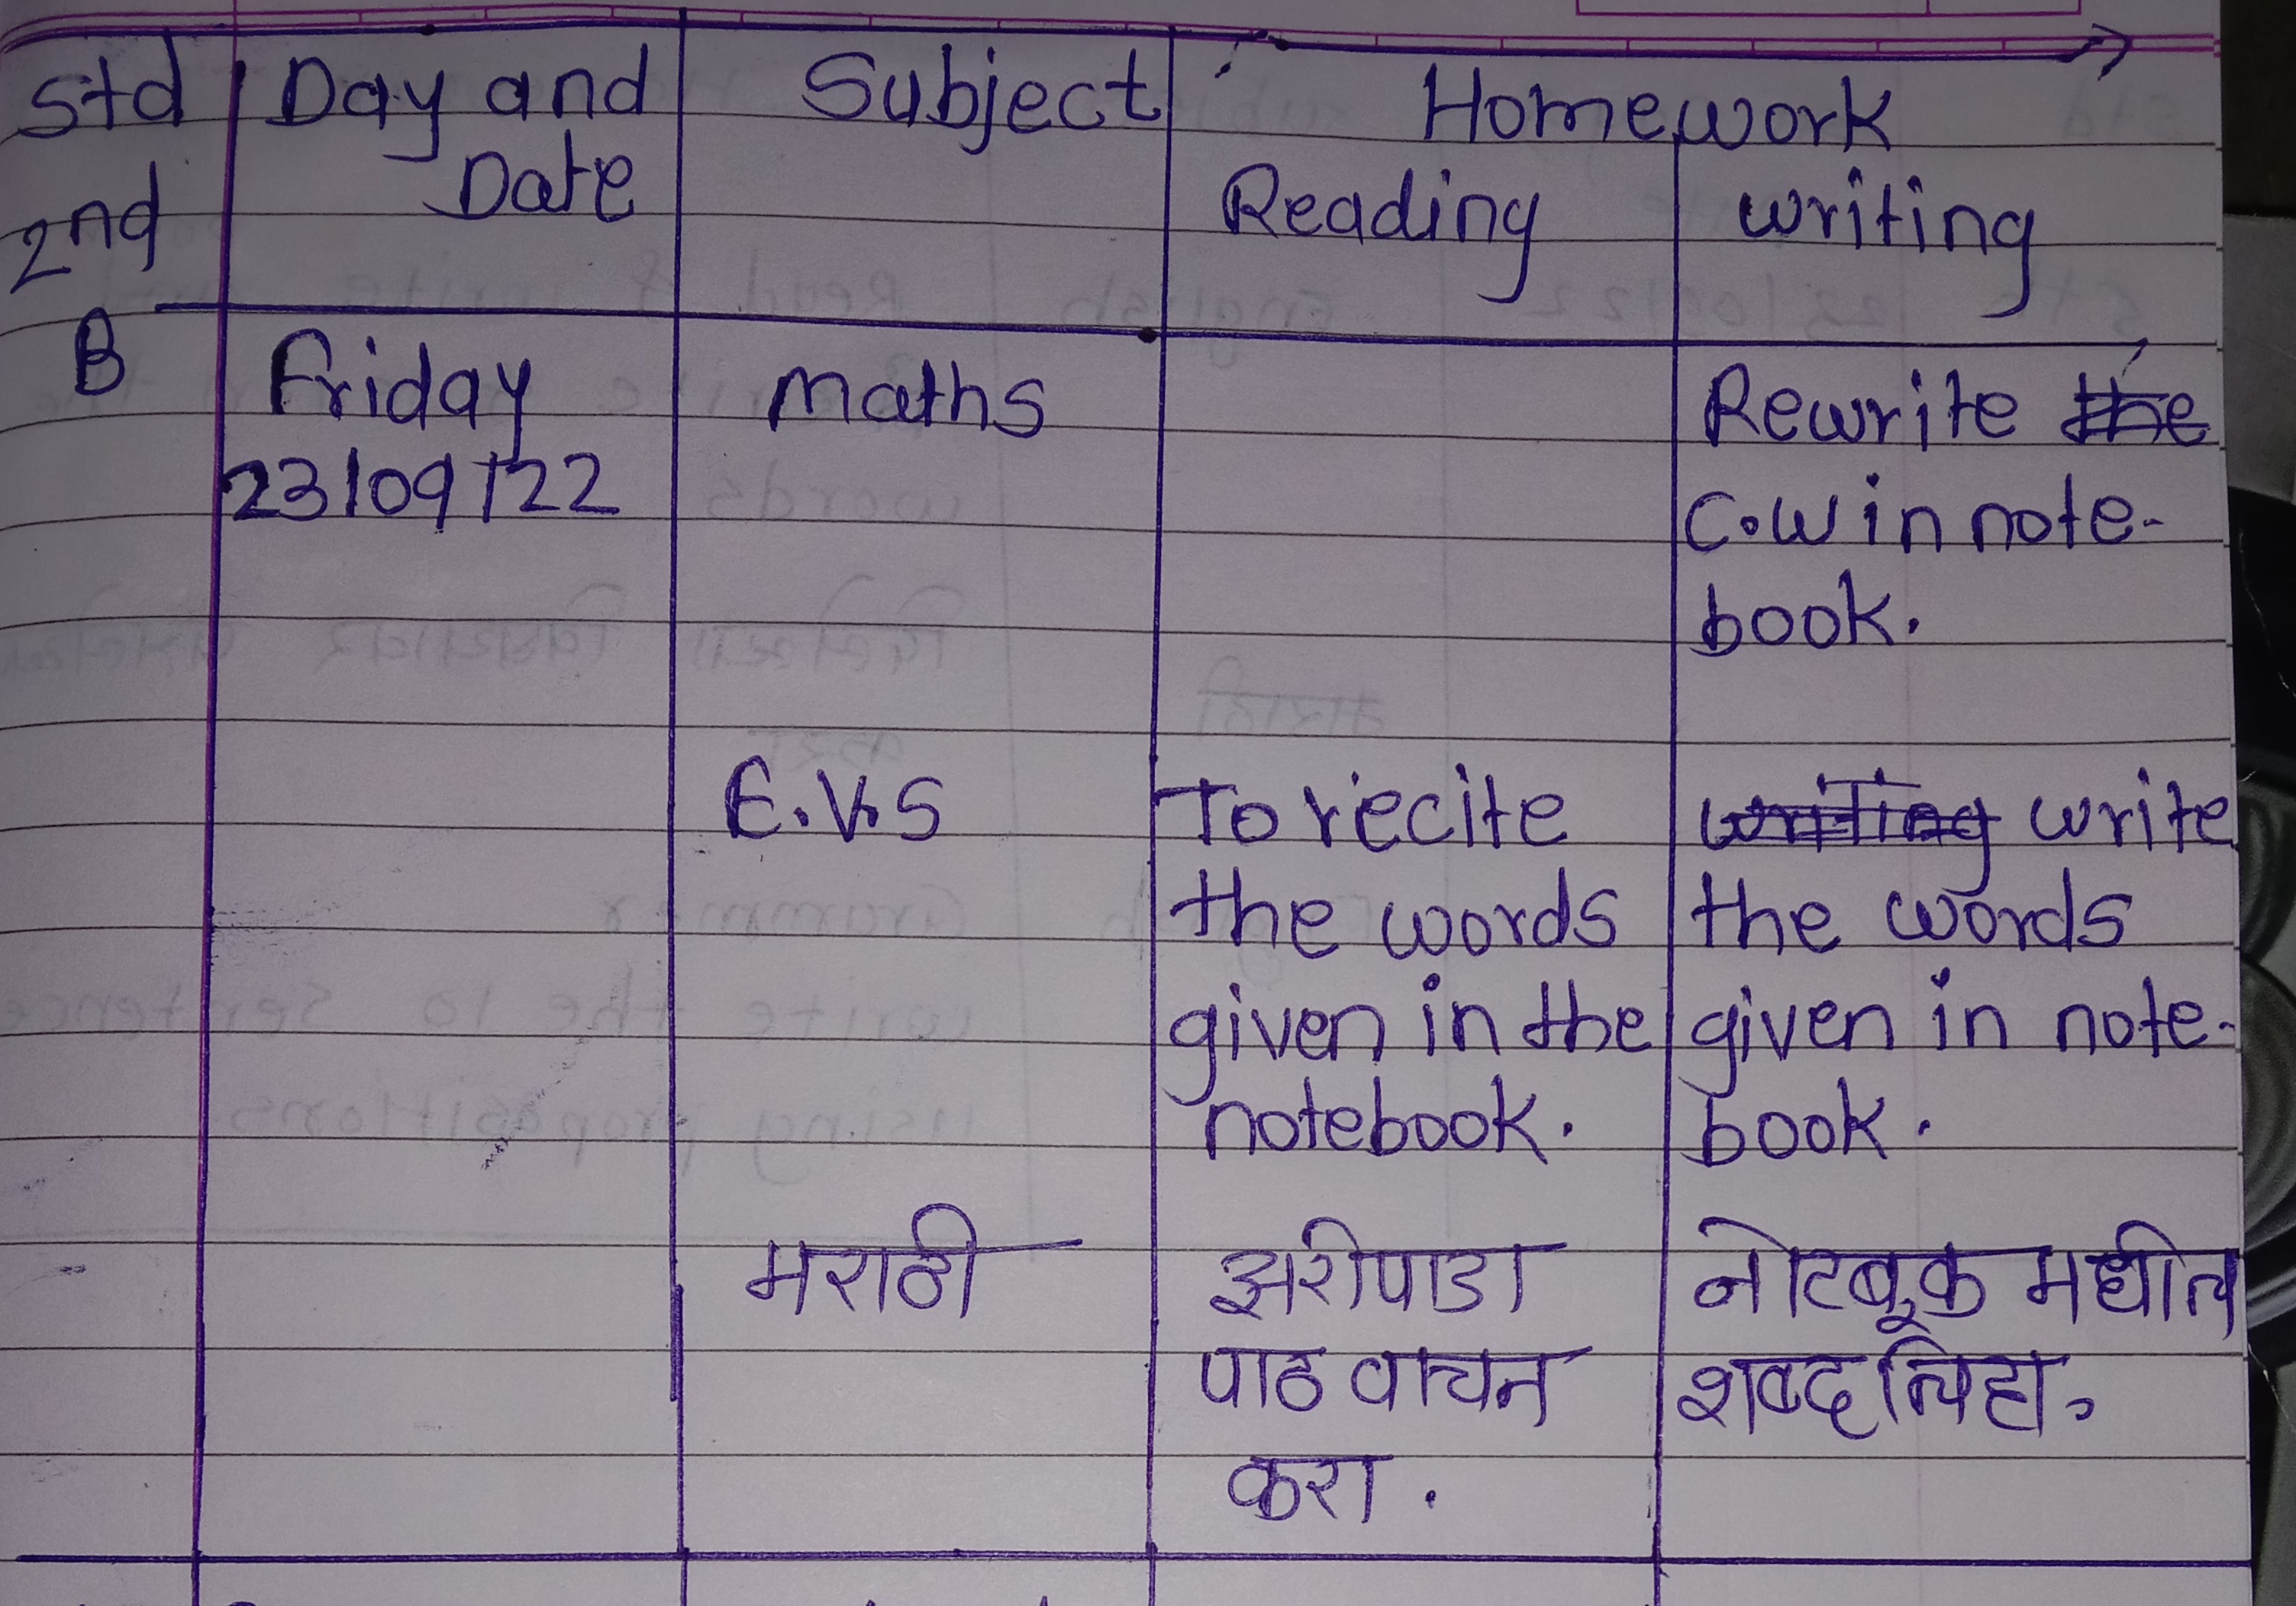 Std Day and Subject Homework
2nd Date Reading writing
B Friday maths Rewrite ~~the~~
23/09/22 C.W in note-
book.
E.V.S To recite ~~writing~~ write
the words the words
given in the given in note-
notebook. book.
मराठी झरीपाडा नोटबूक मधील
पाठ वाचन शब्द लिहा.
करा.